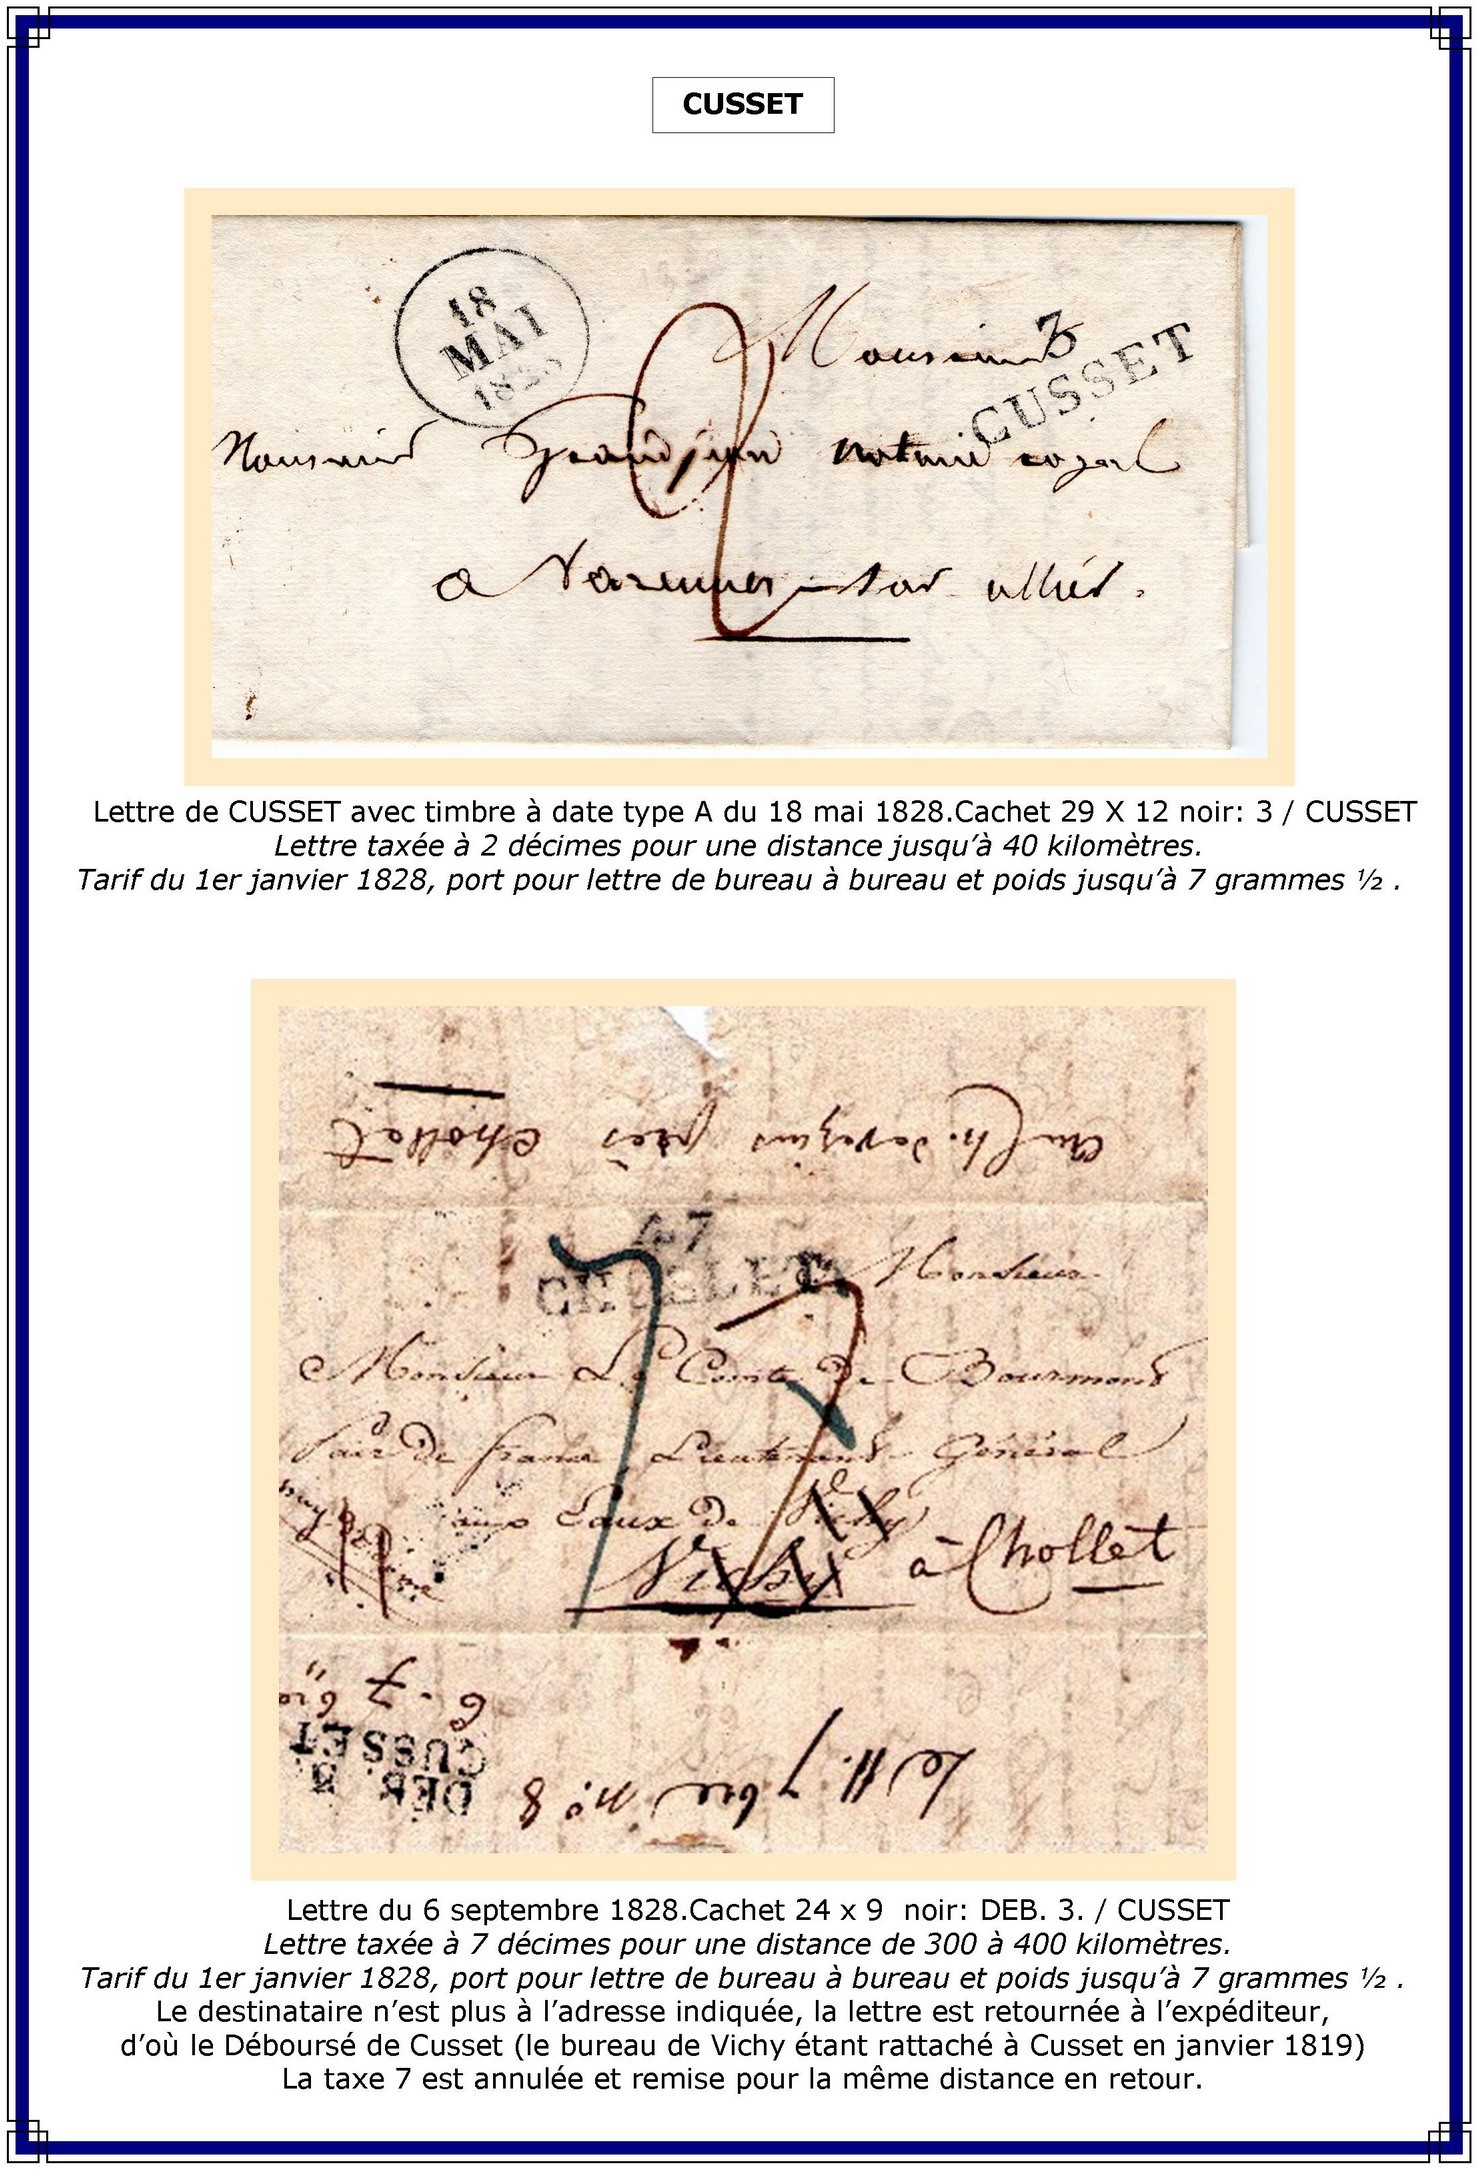 CUSSET
18
MAI
Monsieur
3
CUSSET
Monsieur Grandjean notaire royal
a Varennes sur allier.
2
Lettre de CUSSET avec timbre à date type A du 18 mai 1828.Cachet 29 X 12 noir: 3 / CUSSET
Lettre taxée à 2 décimes pour une distance jusqu’à 40 kilomètres.
Tarif du 1er janvier 1828, port pour lettre de bureau à bureau et poids jusqu’à 7 grammes ½ .
près Chollet
47
CHOLLET
7
7
Monsieur
Monsieur Le Comte De Bourmont
Pair De france, Lieutenant Général
aux Eaux de Vichy
Vichy à Chollet
DEB. 3.
CUSSET
le 11. 7bre n° 8
Lettre du 6 septembre 1828.Cachet 24 x 9 noir: DEB. 3. / CUSSET
Lettre taxée à 7 décimes pour une distance de 300 à 400 kilomètres.
Tarif du 1er janvier 1828, port pour lettre de bureau à bureau et poids jusqu’à 7 grammes ½ .
Le destinataire n’est plus à l’adresse indiquée, la lettre est retournée à l’expéditeur,
d’où le Déboursé de Cusset (le bureau de Vichy étant rattaché à Cusset en janvier 1819)
La taxe 7 est annulée et remise pour la même distance en retour.